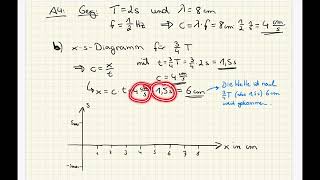 A4: Geg: T=2s und λ=8cm
f=1/2 Hz ⇒ c=λ·f=8cm·1/2 1/s=4 cm/s
b) x-s-Diagramm für 3/4 T
⇒ c=x/t mit t=3/4 T=3/4·2s=1,5s
c=4 cm/s
↳ x=c·t=4 cm/s·1,5s=6cm
Die Welle ist nach
3/4 T (also 1,5s) 6cm
weit gekommen.
s
1 2 3 4 5 6 7 8 x in cm